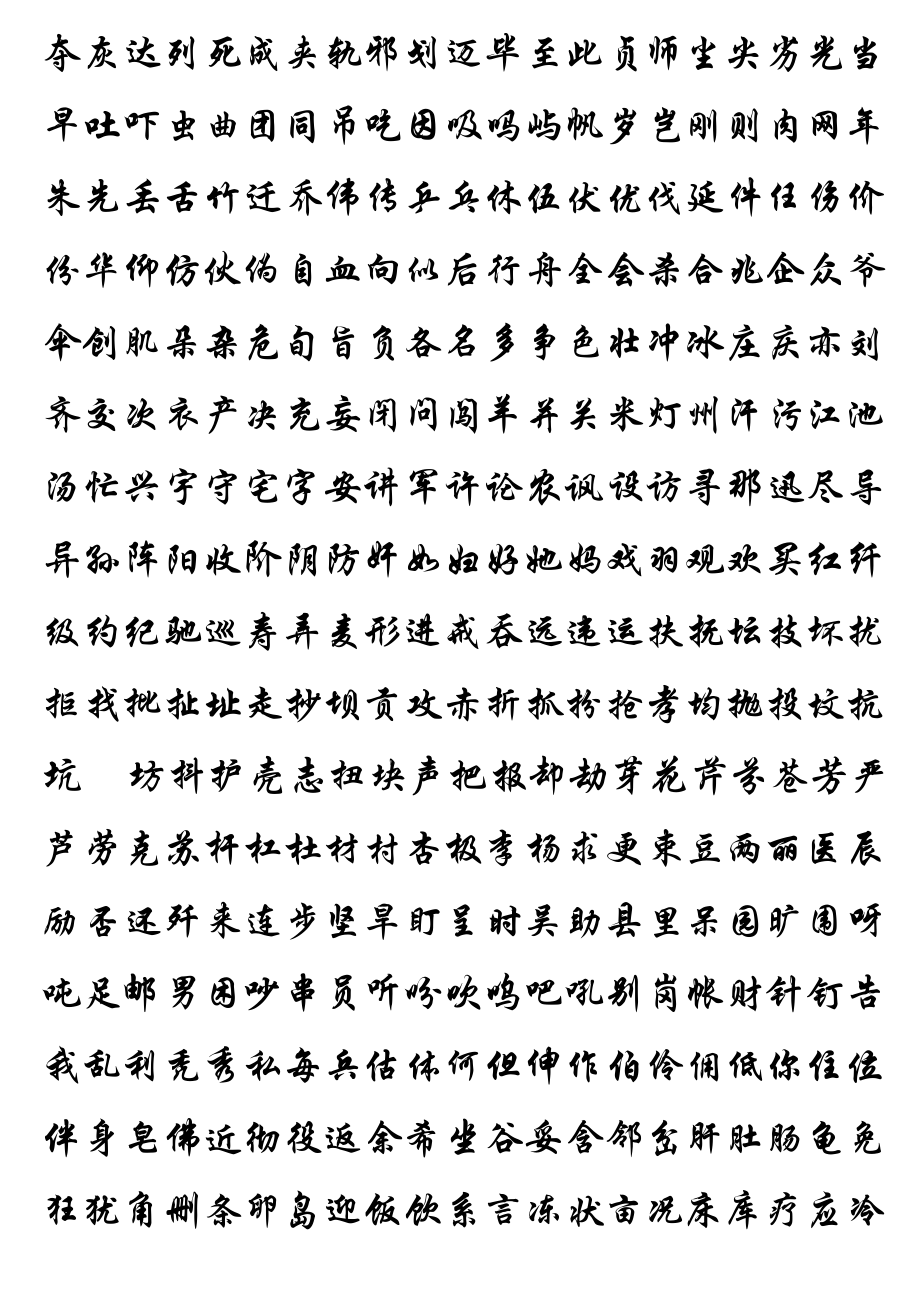 夺灰达列死成夹轨邪划迈毕至此贞师尘尖劣光当
早吐吓虫曲团同吊吃因吸吗屿帆岁岂刚则肉网年
朱先丢舌竹迁乔伟传乒乓休伍伏优伐延件任伤价
份华仰仿伙伪自血向似后行舟全会杀合兆企众爷
伞创肌朵杂危旬旨负各名多争色壮冲冰庄庆亦刘
齐交次衣产决充妄闭问闯羊并关米灯州汗污江池
汤忙兴宇守宅字安讲军许论农讽设访寻那迅尽导
异孙阵阳收阶阴防奸如妇好她妈戏羽观欢买红纤
级约纪驰巡寿弄麦形进戒吞远违运扶抚坛技坏扰
拒找批扯址走抄坝贡攻赤折抓扮抢孝均抛投坟抗
坑 坊抖护壳志扭块声把报却劫芽花芹芬苍芳严
芦劳克苏杆杠杜材村杏极李杨求更束豆两丽医辰
励否还歼来连步坚旱盯呈时吴助县里呆园旷围呀
吨足邮男困吵串员听吩吹呜吧吼别岗帐财针钉告
我乱利秃秀私每兵估体何但伸作伯伶佣低你住位
伴身皂佛近彻役返余希坐谷妥含邻岔肝肚肠龟免
狂犹角删条卵岛迎饭饮系言冻状亩况床库疗应冷